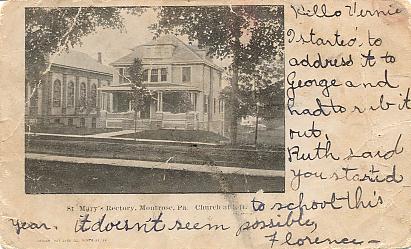 Hello Vernie
I started, to
address it to
George and
had to rub it
out.
Ruth said
you started
St Mary's Rectory, Montrose, Pa. Church at left.
to school this
year. it doesn't seem possible,
Florence-